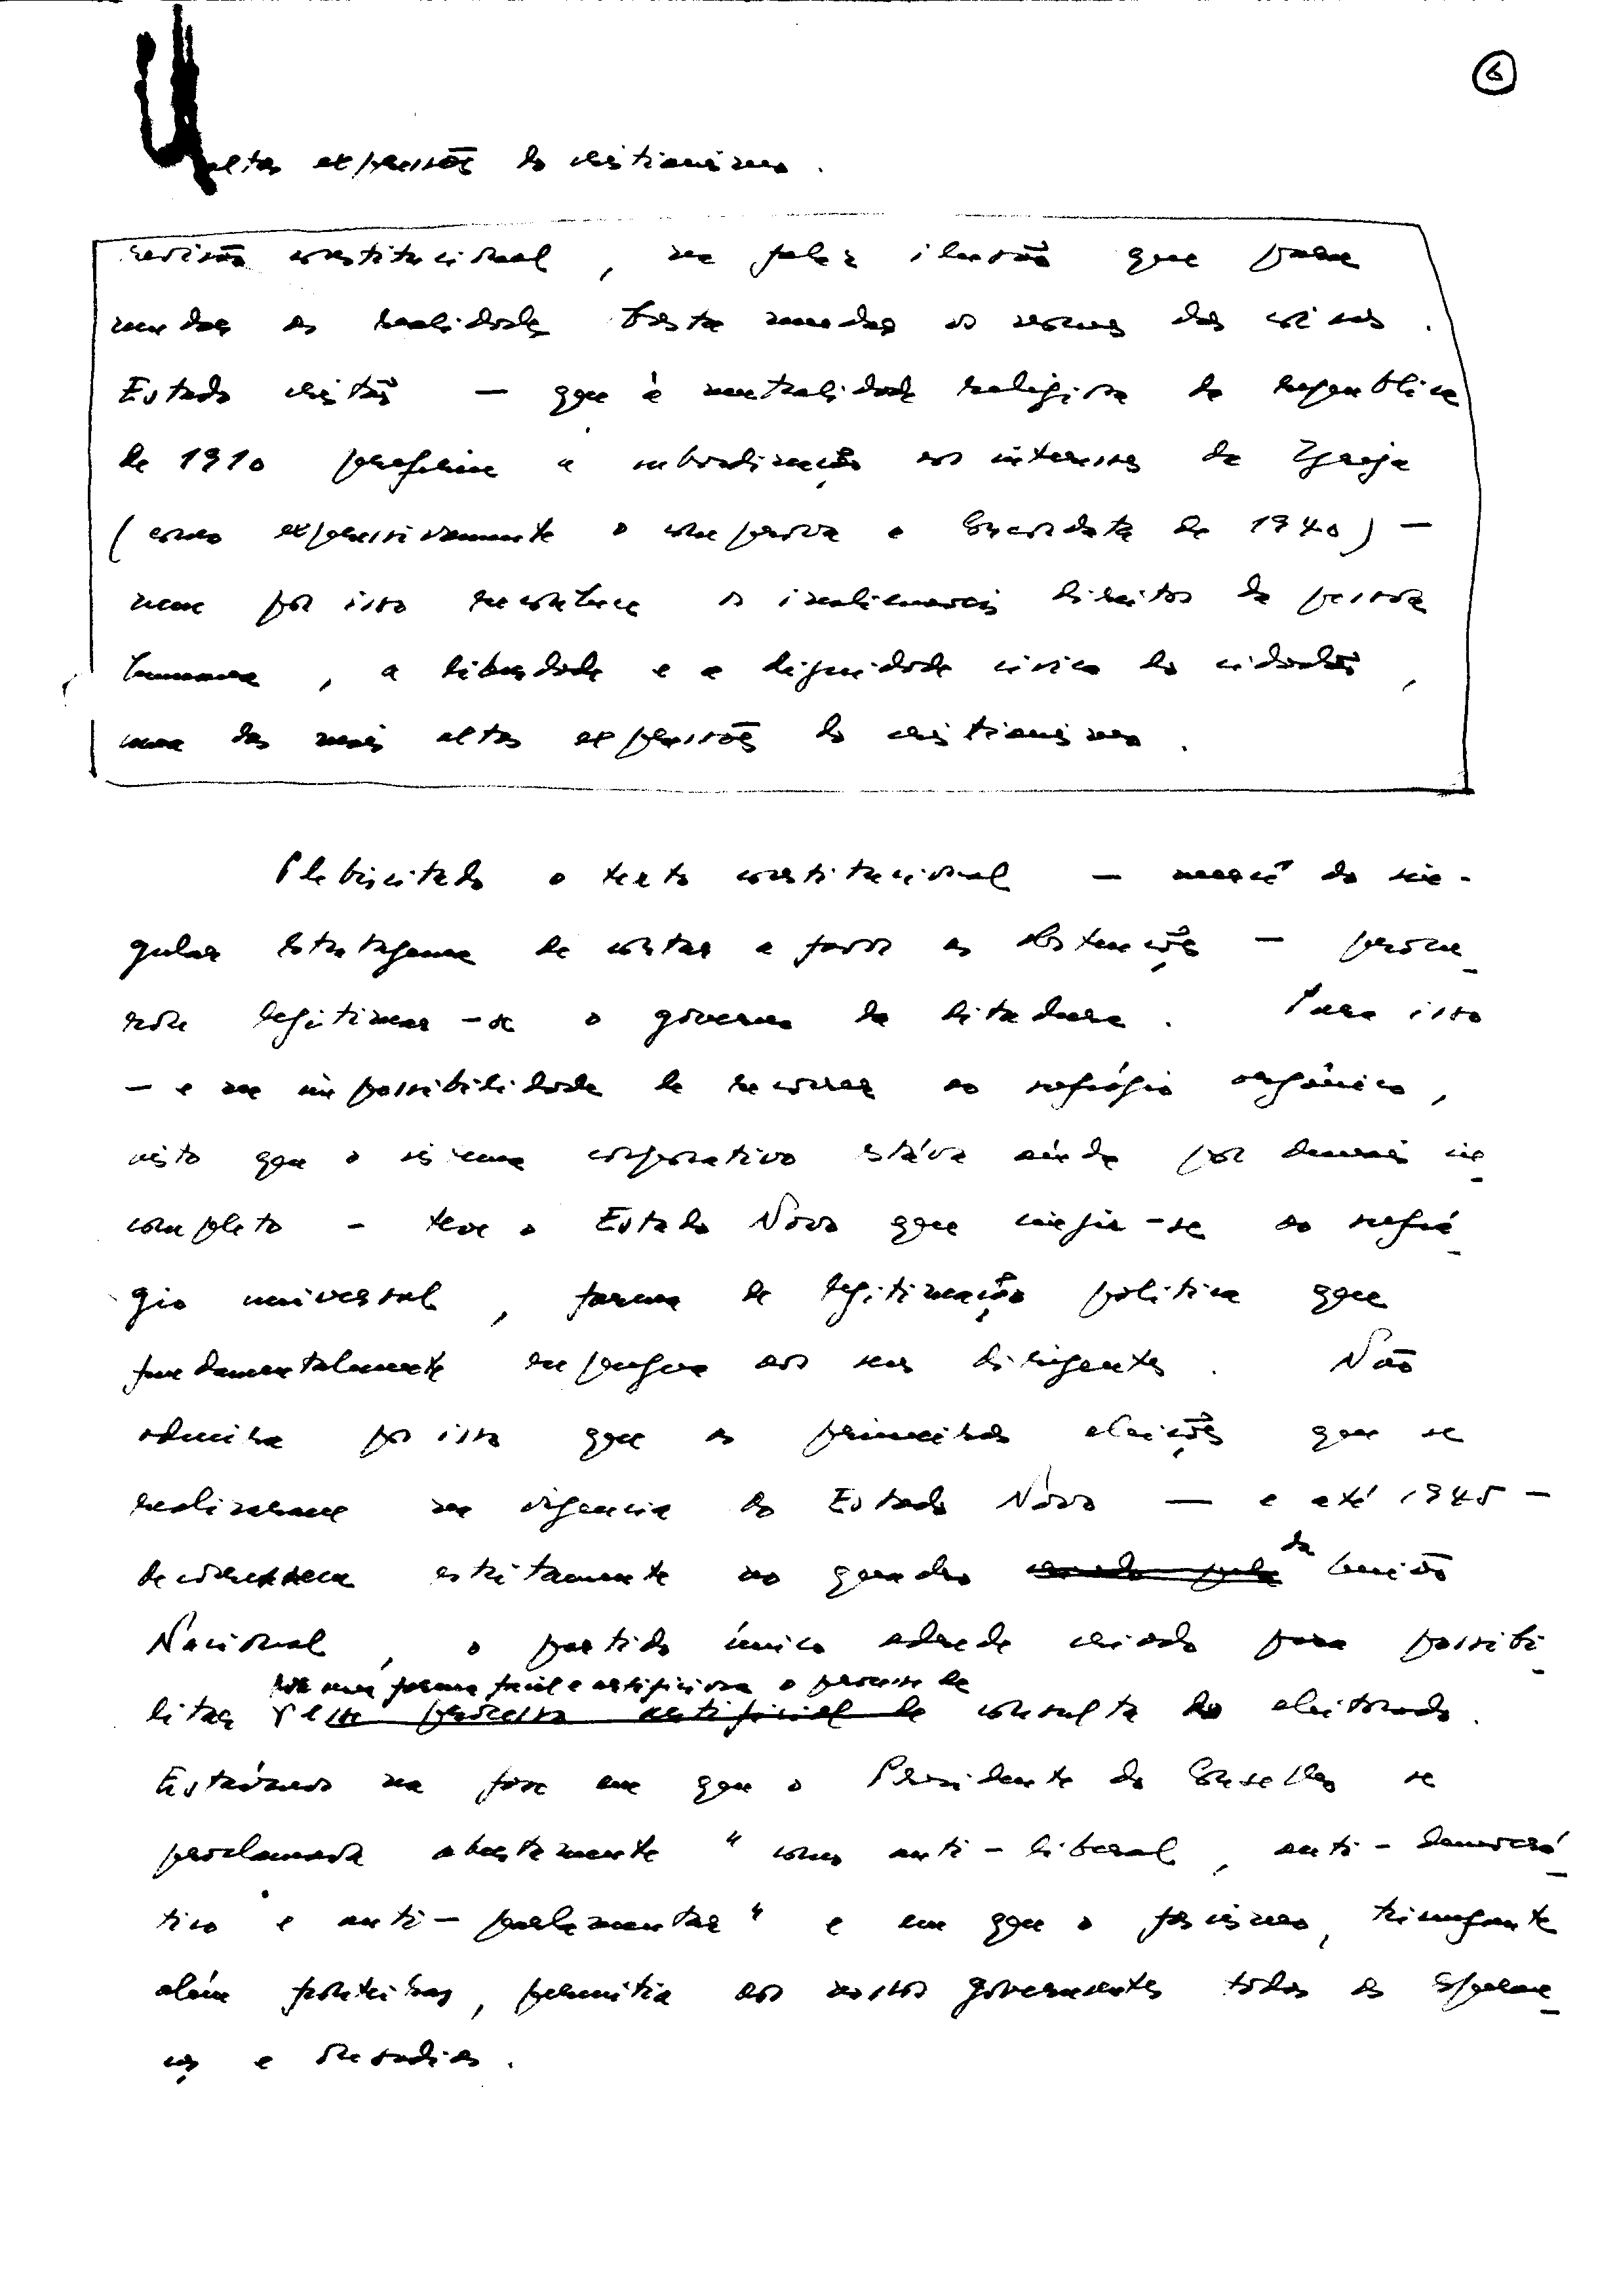 6
altas expressões do cristianismo.
revisão constitucional, na falaz ilusão que para
mudar as realidades basta mudar os nomes das coisas.
Estado cristão — que à neutralidade religiosa da república
de 1910 preferira a subordinação aos interesses da Igreja
(como expressivamente o comprova a Concordata de 1940) —
nem por isso reconhece os inalienáveis direitos da pessoa
humana, a liberdade e a dignidade cívica do cidadão,
uma das mais altas expressões do cristianismo.
Plebiscitado o texto constitucional — mercê do sin-
gular estratagema de contar a favor as abstenções — procu-
rou legitimar-se o governo da ditadura. Para isso
— e na impossibilidade de recorrer ao sufrágio orgânico,
visto que o sistema corporativo estava ainda por demais in-
completo — teve o Estado Novo que cingir-se ao sufrá-
gio universal, forma de legitimação política que
fundamentalmente repugna aos seus dirigentes. Não
admira por isso que as primeiras eleições que se
realizaram na vigência do Estado Novo — e até 1945 —
decorressem estritamente no quadro criado pela da União
Nacional, o partido único adrede criado para possibi-
por uma forma fácil e artificiosa o processo de
litar esse processo artificial de consulta do eleitorado.
Estávamos na fase em que o Presidente do Conselho se
proclamava abertamente "como anti-liberal, anti-democrá-
tico e anti-parlamentar" e em que o fascismo, triunfante
além fronteiras, permitia aos nossos governantes todas as esperan-
ças e ousadias.